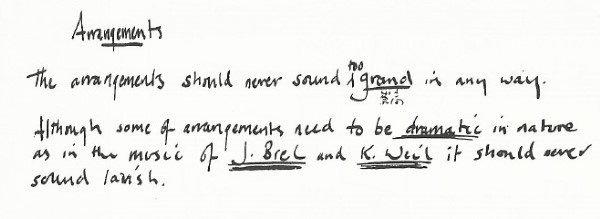 Arrangements
The arrangements should never sound too grand in any way.
Although some of arrangements need to be dramatic in nature
as in the music of J. Brel and K. Weil it should never
sound lavish.